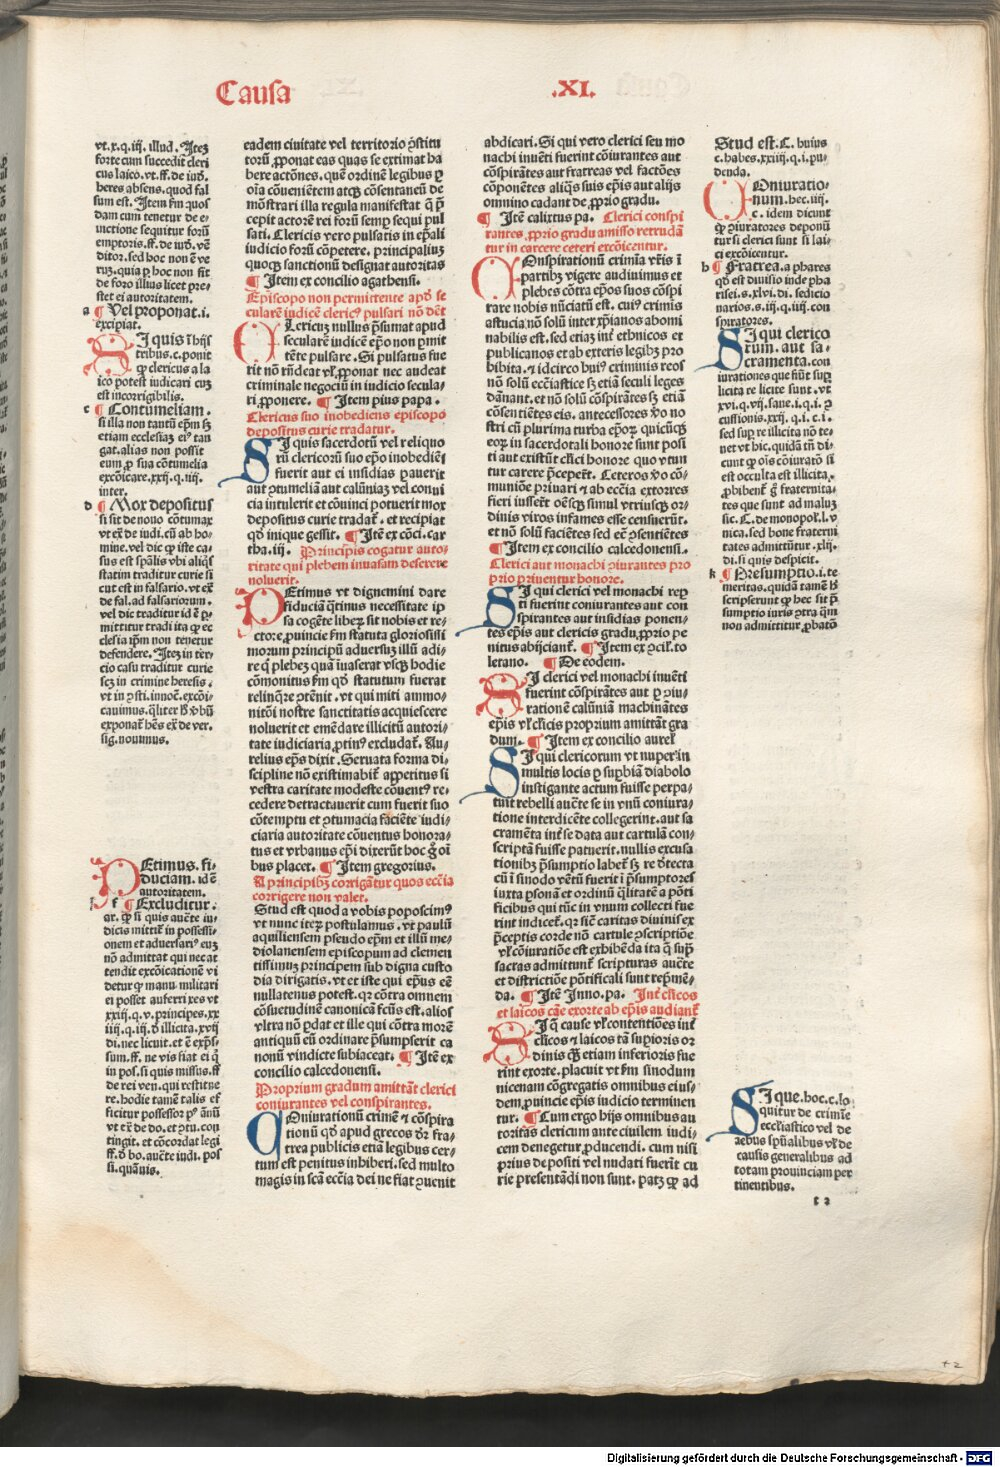 Causa .XI.
vt.x.q.iij. illud. Itez
forte cum succedit cleri
cus laico.vt.ff.de iud.
heres absens. quod fal
sum est. Itez fm quos
dam cum tenetur de e⸗
uictione sequitur forũ
emptoris.ff.de iud. vẽ
ditor. sed hoc non ẽ ve
rũ. quia ꝑ hoc non fit
de foro illius licet pre⸗
stet ei autoritatem.
a ¶ Vel proponat.i.
excipiat.
SI quis ĩ hijs
tribus.c.ponit
ꝙ clericus a la
ico potest iudicari cuz
est incorrigibilis.
c ¶ Contumeliam.
si illa non tantũ ep̃m sz
etiam ecclesiaz ei9 tan
gat. alias non possit
eum ꝓ sua cõtumelia
excõicare.xxij.q.iiij.
inter.
d ¶ Mox depositus
si sit de nouo cõtumax
vt ex̃ de iudi. cũ ab ho⸗
mine. vel dic ꝙ iste ca⸗
sus est sp̃alis vbi aliq̃s
statim traditur curie si
cut est in falsario. vt ex̃
de fal. ad falsariorum.
vel dic traditur id ẽ ꝑ⸗
mittitur tradi ita ꝙ ec
clesia ip̃m non tenetur
defendere. Itez in ter⸗
cio casu traditur curie
scz in crimine heresis.
vt in ꝯsti. innoc̃. excõi⸗
cauimus. q̃liter hũ vbũ
exponat̃ hẽs ex̃ de ver.
sig. nouimus.
PEtimus. fi⸗
duciam. id ẽ
autoritatem.
f ¶ Excluditur.
ar. ꝙ si quis aucte iu⸗
dicis mittit̃ in possessi⸗
onem et aduersari9 euz
nõ admittat qui nec at
tendit excõicationẽ vi
detur ꝙ manu militari
ei posset auferri res vt
xxiij.q.v. principes.xx
iiij.q.iij. ð illicita.xvij
di. nec licuit. et ẽ exp̃s⸗
sum. ff. ne vis fiat ei q̃
in pos. si quis missus.ff
de rei ven. qui restitue
re. hodie tamẽ talis ef
ficitur possessor p9 ãnũ
vt ex̃ de do. et ꝯtu. con
tingit. et cõcordat legi
ff. ð bo. aucte iudi. pos
si. quãuis.
eadem ciuitate vel territorio ꝯstitu
torũ ꝓponat eas quas se extimat ha
bere actõnes. quẽ ordinẽ legibus ꝑ
oĩa cõuenĩẽtem atqz cõsentaneũ de
mõstrari illa regula manifestat q̃ p̃
cepit actorẽ rei forũ semꝑ sequi pul
sati. Clericis vero pulsatis in ep̃ali
iudicio forũ cõpetere. principaliuz
quoqz sanctionũ designat autoritas
¶ Item ex concilio agathensi.
Episcopo non permittente apð se
cularẽ iudicẽ cleric9 pulsari nõ dẽt
CLericuz nullus p̃sumat apud
secularẽ iudicẽ ep̃o non ꝑmit
tẽte pulsare. Si pulsatus fue
rit nõ rñdeat vľ ꝓponat nec audeat
criminale negociũ in iudicio secula⸗
ri ꝓponere. ¶ Item pius papa.
Clericus suo inobediens episcopo
depositus curie tradatur.
SI quis sacerdotũ vel reliquo
rũ clericorũ suo ep̃o inobediẽs
fuerit aut ei insidias pauerit
aut ꝯtumeliã aut calũniaz vel conui
cia intulerit et cõuinci potuerit mox
depositus curie tradat̃. et recipiat
qð inique gessit. ¶ Itẽ ex cõci. car
tha. iij. Principis cogatur auto⸗
ritate qui plebem inuasam deserere
noluerit.
PEtimus vt dignemini dare
fiduciã q̃tinus necessitate ip
sa cogẽte liberũ sit nobis et re⸗
ctore ꝓuincie fm statuta gloriosissi
morum principũ aduersuz illũ adi⸗
re q̃ plebez quã ĩuaserat vsqz hodie
cõmonitus fm qð statutum fuerat
relinq̃re ꝯtẽnit. vt qui miti ammo⸗
nitõi nostre sanctitatis acquiescere
noluerit et emẽdare illicitũ autori⸗
tate iudiciaria ꝓtin9 excludat̃. Au⸗
relius ep̃s dixit. Seruata forma di⸗
scipline nõ existimabit̃ appetitus si
vestra caritate modeste cõuent9 re⸗
cedere detractauerit cum fuerit suo
cõtemptu et ꝯtumacia faciẽte iudi⸗
ciaria autoritate cõuentus honora⸗
tus et vrbanus ep̃i dixerũt hoc g̃ oĩ
bus placet. ¶ Item gregorius.
A principib9 corrigãtur quos ecc̃ia
corrigere non valet.
Stud est quod a vobis poposcim9
vt nunc iterũ postulamus. vt paulũ
aquiliensem pseudo ep̃m et illũ me⸗
diolanensem episcopum ad clemen
tissimuz principem sub digna custo
dia dirigatis. vt et iste qui ep̃us eẽ
nullatenus potest. qr cõtra omnem
cõsuetudinẽ canonicã fc̃us est. alios
vltra nõ ꝑdat et ille qui cõtra morẽ
antiquũ eũ ordinare p̃sumpserit ca
nonũ vindicte subiaceat. ¶ Itẽ ex
concilio calcedonensi.
Proprium gradum amittãt clerici
coniurantes vel conspirantes.
COniurationũ crimẽ ⁊ cõspira
tionũ qð apud grecos ðr fra⸗
trea publicis etiã legibus cer⸗
tum est penitus inhiberi. sed multo
magis in scã ecc̃ia dei ne fiat ꝯuenit
abdicari. Si qui vero clerici seu mo
nachi inuẽti fuerint cõiurantes aut
cõspirãtes aut fratreas vel factões
cõponẽtes aliq̃s suis ep̃is aut alijs
omnino cadant de ꝓprio gradu.
¶ Itẽ calixtus pa. Clerici conspi
rantes. ꝓprio gradu amisso retrudã
tur in carcere ceteri excõicentur.
COnspirationũ crimĩa vr̃is ĩ
partib9 vigere audiuimus et
plebes cõtra ep̃os suos cõspi
rare nobis nũciatũ est. cui9 crimis
astucia nõ solũ inter xp̃ianos abomi
nabilis est. sed etiaz int̃ ethnicos et
publicanos et ab exteris legib9 pro
hibita. ⁊ idcirco hui9 criminis reos
nõ solũ ecc̃iastice sz etiã seculi leges
dãnant. et nõ solũ cõspirãtes sz etiã
cõsentiẽtes eis. antecessores vo no
stri cũ plurima turba ep̃oꝝ quicũqz
eoꝝ in sacerdotali honore sunt posi
ti aut existũt clici honore quo vtun
tur carere p̃cepeꝛt. Ceteros vo cõ⸗
muniõe priuari ⁊ ab ecc̃ia extorres
fieri iusseꝛt oẽsqz simul vtriusqz or⸗
dinis viros infames esse censuerũt.
et nõ solũ faciẽtes sed eẽ ꝯsentiẽtes
¶ Item ex concilio calcedonensi.
Clerici aut monachi ꝯiurantes pro
prio priuentur honore.
SI qui clerici vel monachi reꝑ
ti fuerint coniurantes aut con
spirantes aut insidias ponen⸗
tes ep̃is aut clericis gradu ꝓprio pe
nitus abijciant̃. ¶ Item ex ꝯcil̃. to
letano. ¶ De eodem.
SI clerici vel monachi inuẽti
fuerint cõspirãtes aut ꝑ ꝯiu⸗
rationẽ calũniã machinãtes
ep̃is vľ clicis proprium amittãt gra
dum. ¶ Item ex concilio aurel̃
SI qui clericorum vt nuper in
multis locis ꝑ supbiã diabolo
instigante actum fuisse perpa⸗
tuit rebelli aucte se in vnũ coniura⸗
tione interdicẽte collegerint. aut sa
cramẽta int̃ se data aut cartulã con⸗
scriptã fuisse patuerit. nullis excusa
tionib9 p̃sumptio habet̃ sz re ðtecta
cũ ĩ sinodo ventũ fuerit ĩ p̃sumptores
iuxta ꝑsonã et ordinũ q̃litatẽ a põti
ficibus qui tũc in vnum collecti fue
rint iudicet̃. qr siẽ caritas diuinis ex
p̃ceptis corde nõ cartule ꝯscriptiõe
vľ cõiuratiõe est exhibẽda ita q̃ sup̃
sacras admittunt̃ scripturas aucte
et districtiõe põtificali sunt rep̃mẽ⸗
da. ¶ Itẽ Inno. pa. Int̃ clicos
et laicos cãe exorte ab ep̃is audiant̃
SI q̃ cause vľ contentiões int̃
clicos ⁊ laicos tã supioris or
dinis qz etiam inferioris fue
rint exorte. placuit vt fm sinodum
nicenam cõgregatis omnibus eius⸗
dem ꝓuincie ep̃is iudicio terminen
tur. ¶ Cum ergo hijs omnibus au
toritas clericum ante ciuilem iudi⸗
cem denegetur ꝓducendi. cum nisi
prius depositi vel nudati fuerĩt cu
rie presentãdi non sunt. patz ꝙ ad
Stud est. C. huius
c. habes.xxiij.q.i.pu⸗
denda.
COniuratio⸗
num. hec.iiij.
c. idem dicunt
ꝙ ꝯiuratores deponũ
tur si clerici sunt si lai⸗
ci excõicentur.
h ¶ Fratrea. a phares
qð est diuisio inde pha
risei.s.xlvi.di. sedicio
narios.s.iij.q.iiij. con
spiratores.
SI qui clerico
rum. aut sa⸗
cramenta. con
iurationes que fiũt sup̃
licita re licite sunt. vt
xvi.q.vij. sane.i.q.i. ꝯ
cussionis.xxij.q.i.c.i.
sed sup̃ re illicita nõ te⸗
net vt hic. quidã tñ di⸗
cunt ꝙ oĩs cõiuratõ si
est occulta est illicita.
ꝓhibent̃ g̃ fraternita⸗
tes que sunt ad maluz
sic. C. de monopol. l. v
nica. sed bone fraterni
tates admittũtur.xlij.
di. si quis despicit.
k ¶ Presumptio.i. te
meritas. quidã tamẽ hũ
scripserunt ꝙ hec sit p̃
sumptio iuris ꝯtra q̃m
non admittitur ꝓbatõ
SI que. hoc. c. lo
quitur de crimĩe
ecclĩastico vel de
rebus sp̃ualibus vľ de
causis generalibus ad
totam prouinciam per
tinentibus.
s 2
+2
Digitalisierung gefördert durch die Deutsche Forschungsgemeinschaft - DFG